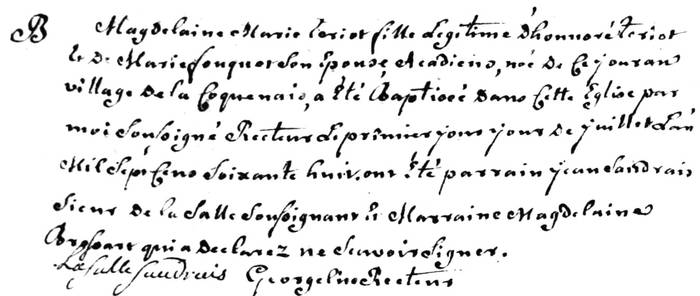 B Magdelaine Marie teriot fille Legitime D'honnoré teriot
Et De Marie fouquet Son Epouse Acadiens, née De Ce jour au
village De la Coquenais, a Eté Baptiséé Dans Cette Eglise par
moi Sousigné Recteur Le premier jour jour De juillet L'an
Mil Sept Cens Soixante huit. ont Eté parrain jean Saudrais
Sieur De la Salle Sousignant Et Marraine Magdelaine
qui a Declarez ne Scavoir Signer.
LaSalle Saudrais Georgelin Recteur